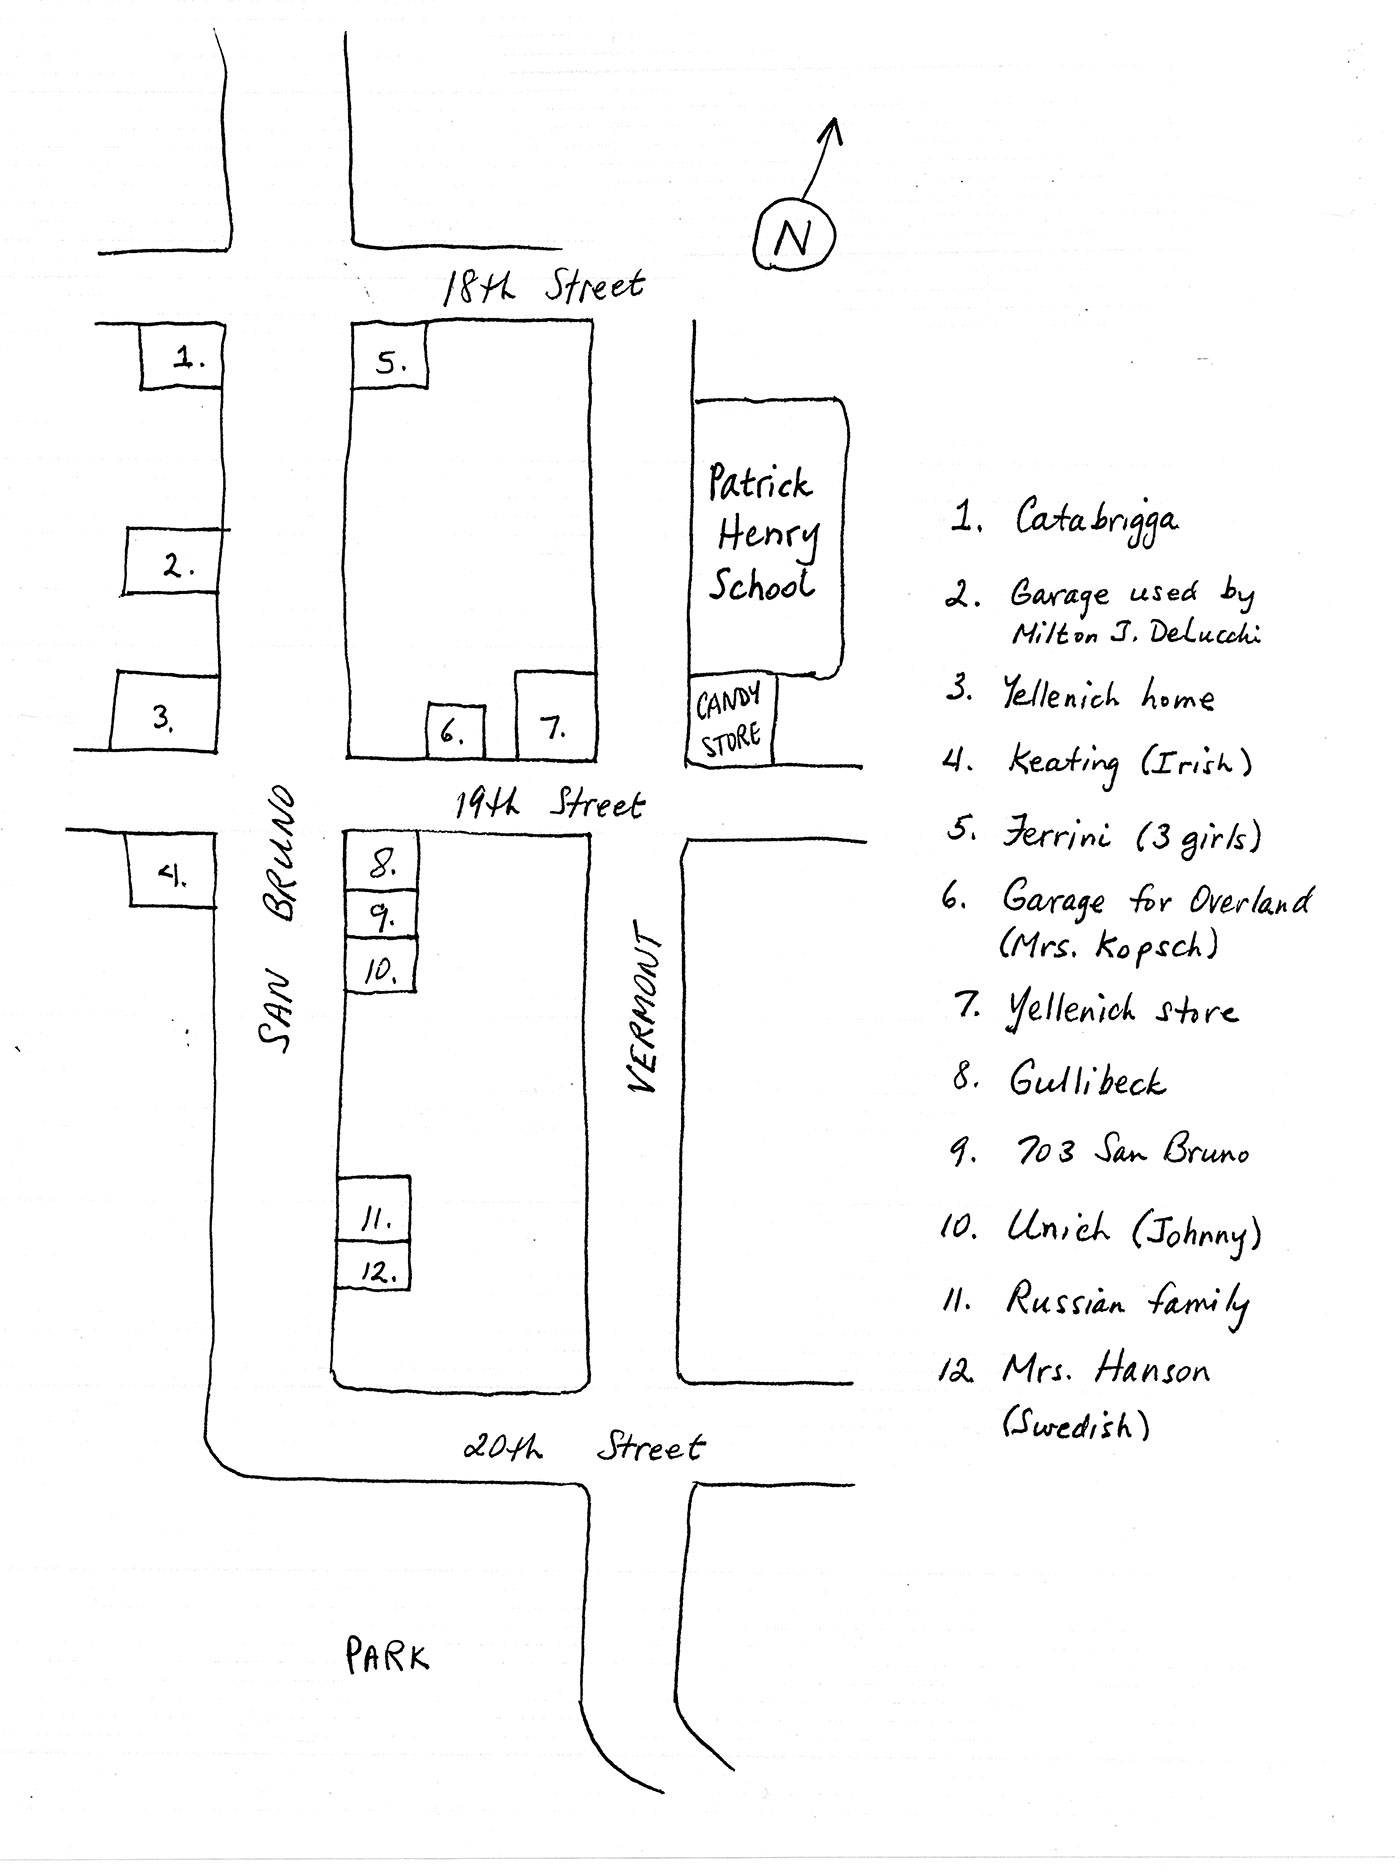 N
18th Street
1.
5.
Patrick
Henry
School
2.
3.
6.
7.
CANDY
STORE
19th Street
SAN BRUNO
4.
8.
9.
10.
VERMONT
11.
12.
20th Street
PARK
1. Catabrigga
2. Garage used by
Milton J. DeLucchi
3. Yellenich home
4. Keating (Irish)
5. Ferrini (3 girls)
6. Garage for Overland
(Mrs. Kopsch)
7. Yellenich store
8. Gullibeck
9. 703 San Bruno
10. Unich (Johnny)
11. Russian family
12. Mrs. Hanson
(Swedish)